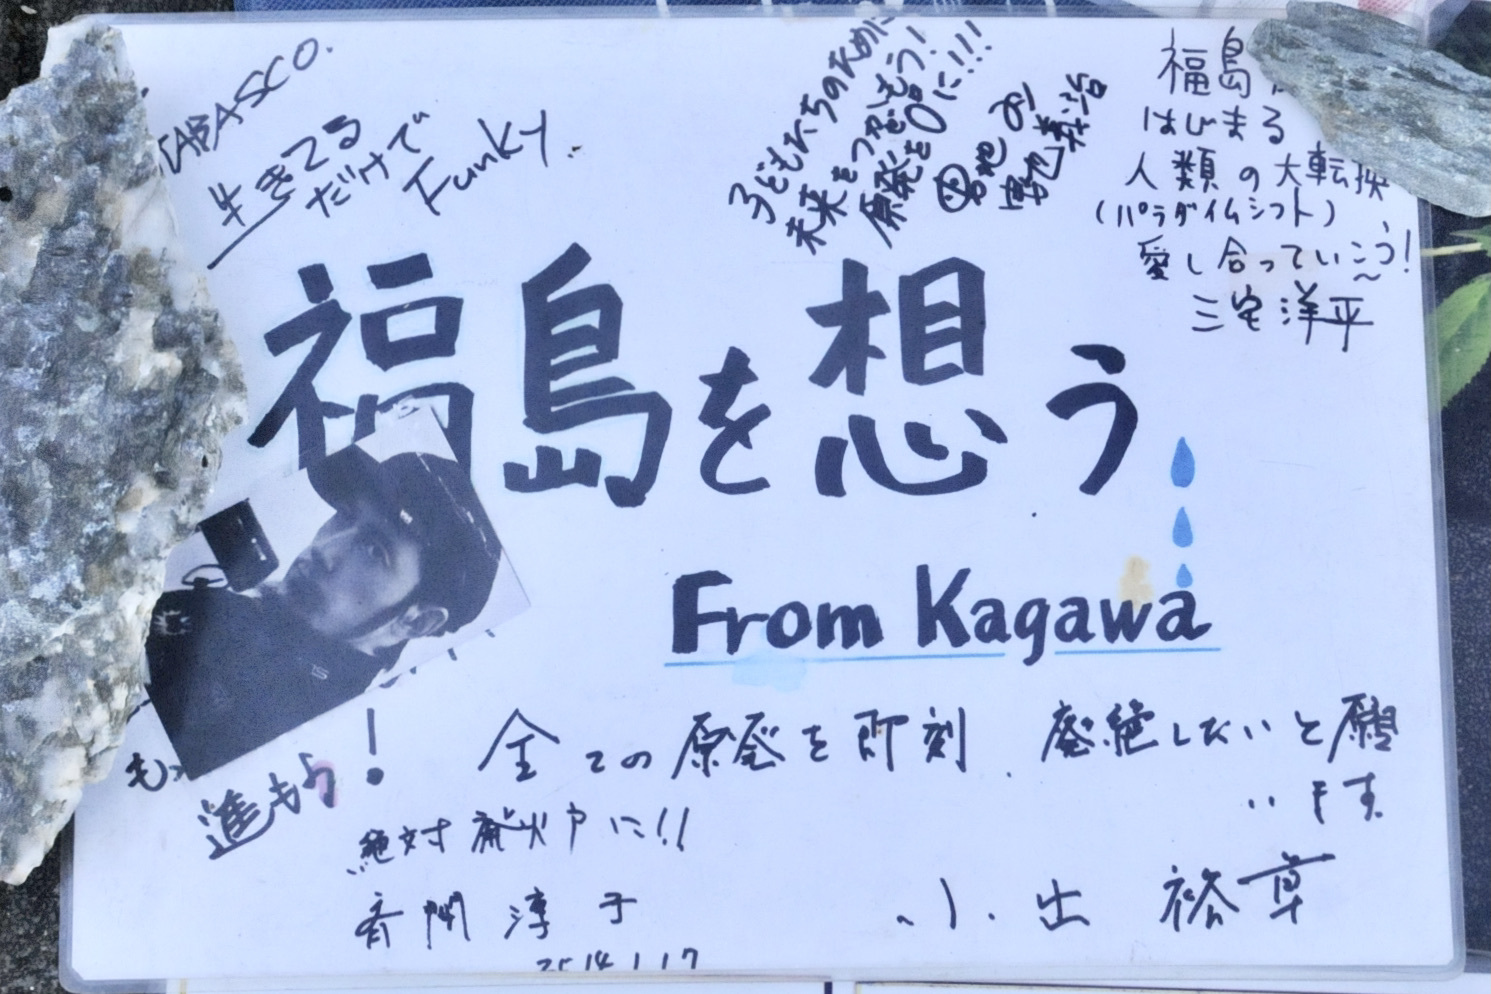 TABASCO.
生きてる
だけで
Funky.
子どもたちのために
未来をつなごう!
原発を0に!!!
福島
はじまる
人類の大転換
(パラダイムシフト)
愛し合っていこう!
三宅洋平
福島を想う
From Kagawa
進もう!
全ての原発を即刻、廃絶したいと願
います
絶対廃炉に!!
小出 裕章
淳子
2014.1.17